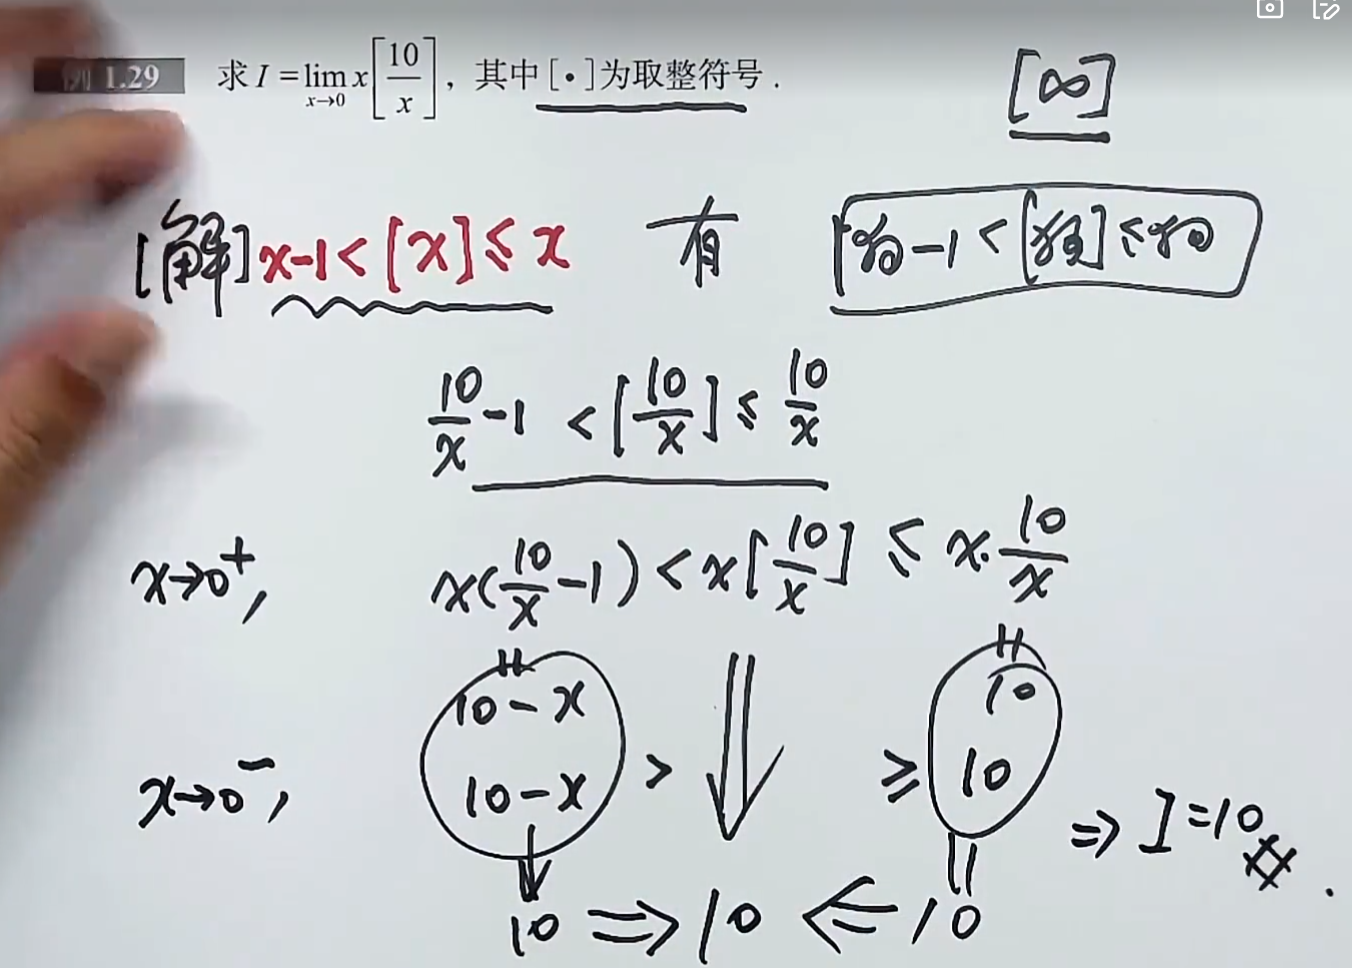 例 1.29 求 I = lim x→0 x[10/x], 其中[•]为取整符号.
[∞]
[解] x-1<[x]≤x 有
10/x-1 <[10/x]≤ 10/x
x→0⁺, x(10/x-1)<x[10/x] ≤ x·10/x
10-x 10
x→0⁻, 10-x > ≥ 10 ⇒ I=10
10 ⇒ 10 ⇐ 10